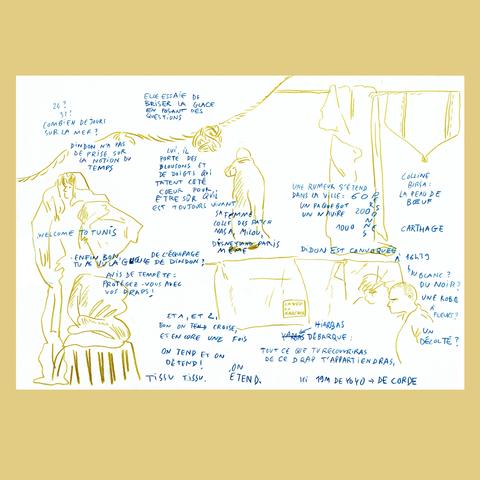 26?
31?
COMBIEN DE JOURS
SUR LA MER?
DINDON N'A PAS
DE PRISE SUR
LA NOTION DU
TEMPS
WELCOME TO TUNIS
ENFIN BON,
TU AS VU LA GUEULE DE L'ÉQUIPAGE
DE DINDON?
AVIS DE TEMPÊTE:
PROTÉGEZ-VOUS AVEC
VOS DRAPS!
ELLE ESSAIE DE
BRISER LA GLACE
EN POSANT DES
QUESTIONS
LUI, IL
PORTE DES
BLOUSONS ET
DE DOIGTS QUI
TATENT CÔTÉ
COEUR POUR
ÊTRE SÛR QU'IL
EST TOUJOURS VIVANT
SA FEMME
COLLE DES PATCH
NASA, MILOU,
DISNEYLAND PARIS
MÊME
ET 1, ET 2,
BON ON TEND CROISE,
ET ENCORE UNE FOIS
ON TEND ET ON
DÉTEND!
TISSU TISSU.
ON
ÉTEND.
UNE RUMEUR S'ÉTEND
DANS LA VILLE: 60
UN PAQUEBOT
UN NAVIRE 200
1000
PERSONNES
DIDON EST CONVOQUÉE
À 16H39
COLLINE
BIRSA:
LA PEAU DE
BOEUF
CARTHAGE
EN BLANC?
DU NOIR?
UNE ROBE
À
FLEURS?
UN
DÉCOLTÉ?
HIARBAS
DÉBARQUE:
TOUT CE QUE TU RECOUVRIRAS
DE CE DRAP T'APPARTIENDRAS,
ICI 19M DE YOYO → DE CORDE